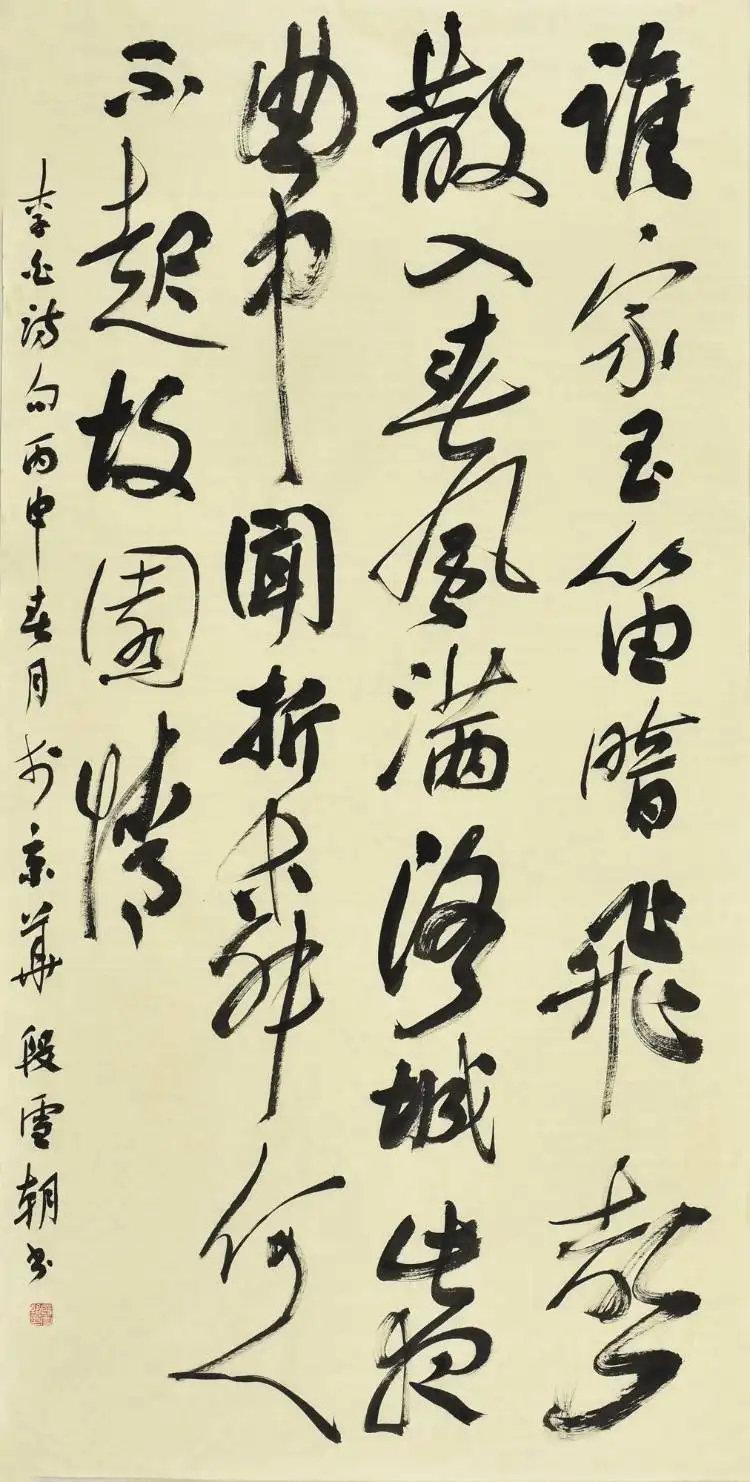 誰家玉笛暗飛聲
散入春風滿洛城此夜
曲中聞折柳何人
不起故園情
李白詩句丙申春月於京華段雪朝書